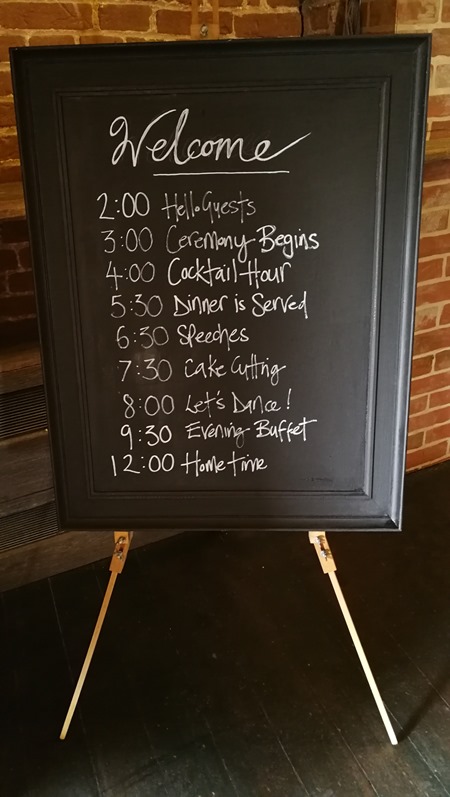 Welcome
2:00 Hello Guests
3:00 Ceremony Begins
4:00 Cocktail Hour
5:30 Dinner is Served
6:30 Speeches
7:30 Cake Cutting
8:00 Let's Dance!
9:30 Evening Buffet
12:00 Home time